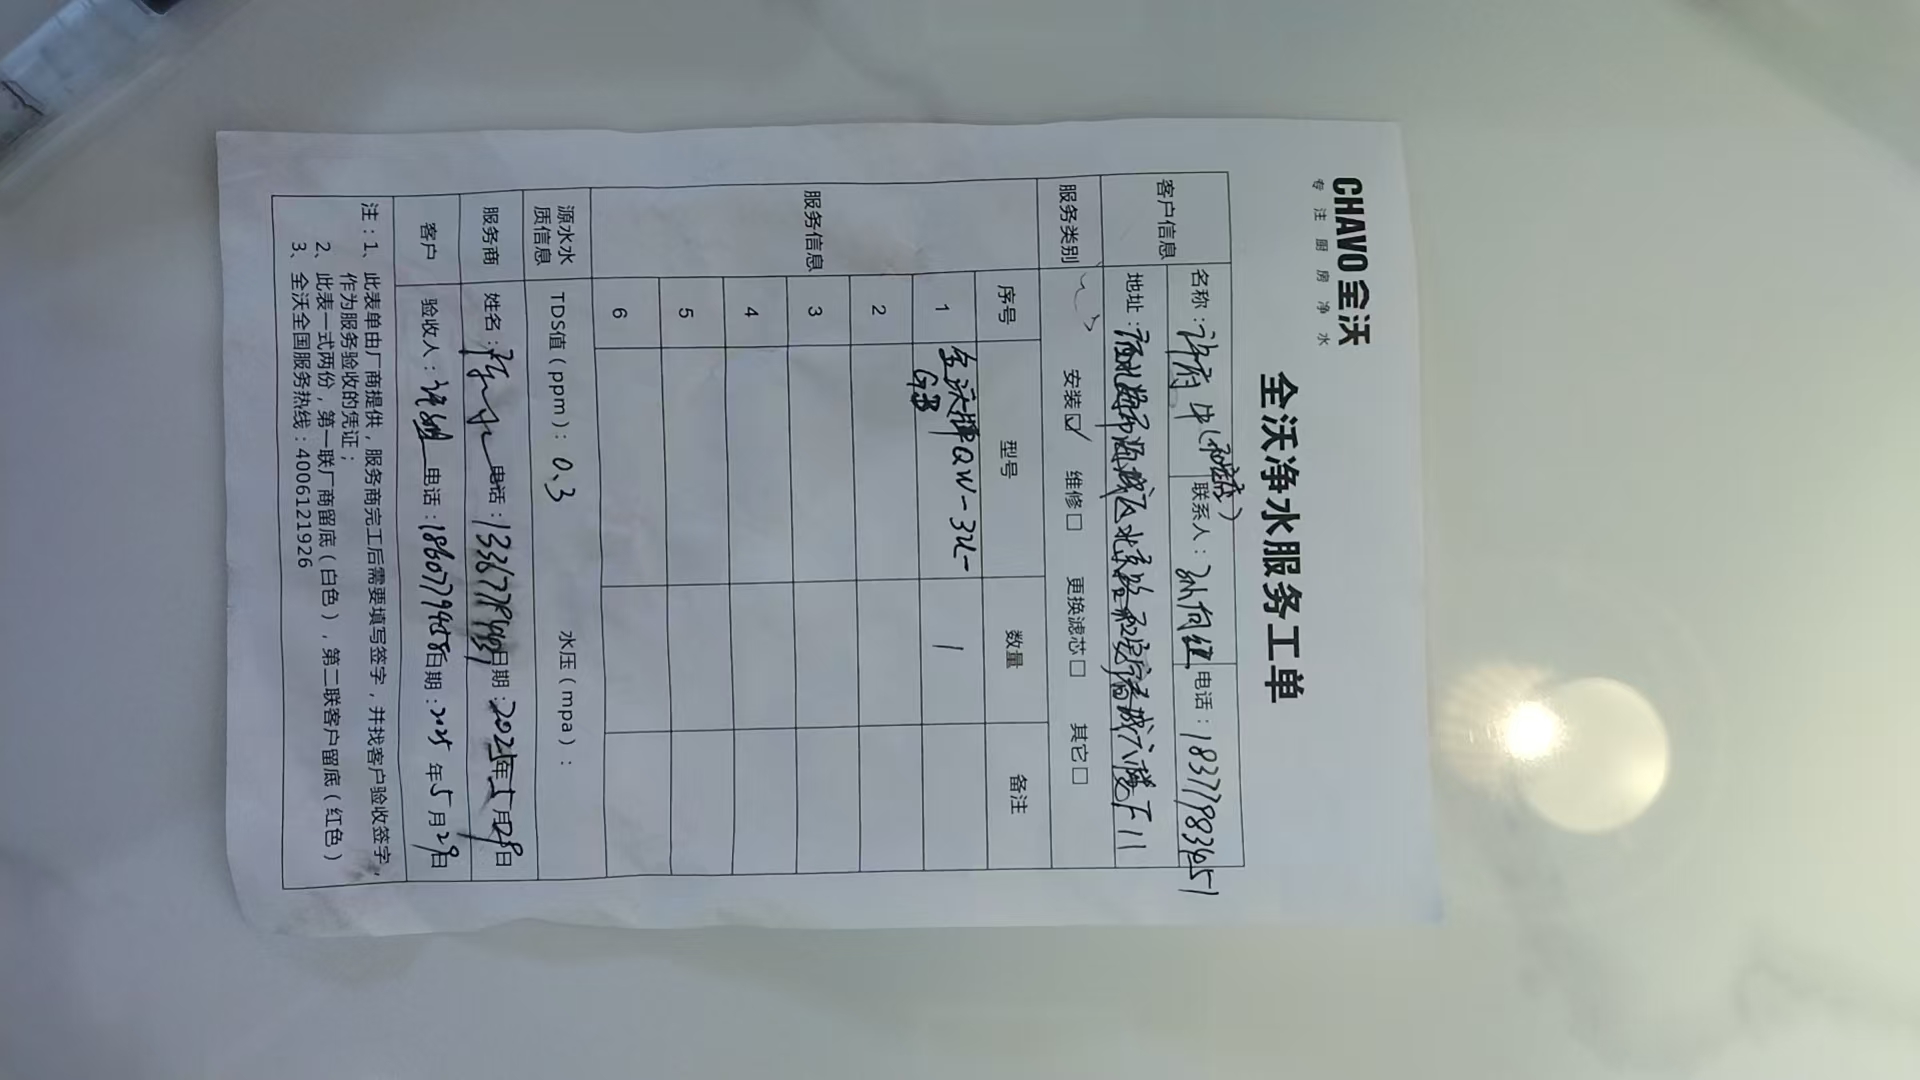 CHAVO 全沃
专注厨房净水
全沃净水服务工单
客户信息
名称：许府牛 联系人：孙向组 电话：18377983451
地址： 海城区北京路和安宁春城六楼F11
服务类别
安装☑ 维修□ 更换滤芯□ 其它□
服务信息
序号 型号 数量 备注
1 全沃牌QW-3U- 1
GB
2
3
4
5
6
源水水质信息
TDS值（ppm）：0、3 水压（mpa）：
服务商
姓名： 电话： 日期：2025年5月28日
客户
验收人： 电话：18607799458 日期：2025年5月29日
注：1、此表单由厂商提供，服务商完工后需要填写签字，并找客户验收签字，
作为服务验收的凭证；
2、此表一式两份，第一联厂商留底（白色），第二联客户留底（红色）
3、全沃全国服务热线：4006121926